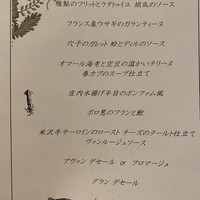 稚鮎のフリットとラタトゥイユ 胡瓜のソース
フランス産ウサギのガランティーヌ
穴子のガレット 蛤とディルのソース
オマール海老と空豆の温かいテリーヌ
春カブのスープ仕立て
庄内水揚げ平目のボンファム風
ポロ葱のフランと鮑
米沢牛サーロインのロースト チーズのクールト仕立て
ヴァンルージュソース
アヴァン デセール or フロマージュ
グラン デセール